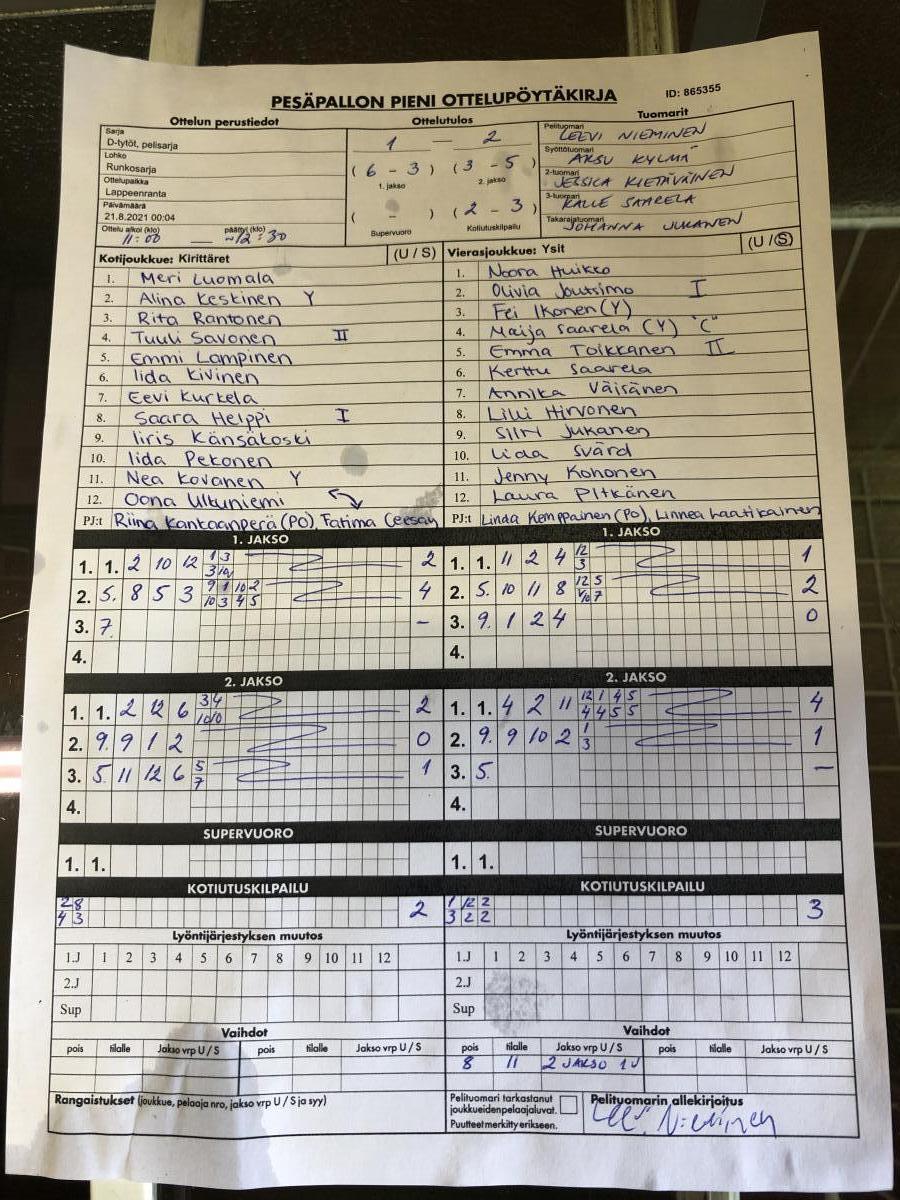 PESÄPALLON PIENI OTTELUPÖYTÄKIRJA ID: 865355
Ottelun perustiedot Ottelutulos Tuomarit
Sarja
D-tytöt, pelisarja
Lohko
Runkosarja
Ottelupaikka
Lappeenranta
Päivämäärä
21.8.2021 00:04
Ottelu alkoi (klo) päättyi (klo)
11:00 — ~12:30
1 — 2
( 6 - 3 ) ( 3 - 5 )
1. jakso 2. jakso
( - ) ( 2 - 3 )
Supervuoro Kotiutuskilpailu
Pelituomari
LEEVI NIEMINEN
Syöttötuomari
AKSU KYLMÄ
2-tuomari
JESSICA KIETÄVÄINEN
3-tuomari
KALLE SAARELA
Takarajatuomari
JOHANNA JUKANEN
Kotijoukkue: Kirittäret (U / S)
1. Meri Luomala
2. Alina Keskinen Y
3. Rita Rantonen
4. Tuuli Savonen II
5. Emmi Lampinen
6. Iida Kivinen
7. Eevi Kurkela
8. Saara Helppi I
9. Iiris Känsäkoski
10. Iida Pekonen
11. Nea Kovanen Y
12. Oona Ukuniemi
PJ:t Riina Kantaanperä (PO), Fatima Ceesay
Vierasjoukkue: Ysit (U / S)
1. Noora Huikko
2. Olivia Joutsimo I
3. Fei Ikonen (Y)
4. Maija Saarela (Y) "C"
5. Emma Toikkanen II
6. Kerttu Saarela
7. Annika Väisänen
8. Lilli Hirvonen
9. Siiri Jukanen
10. Lida Svärd
11. Jenny Kohonen
12. Laura Pitkänen
PJ:t Linda Kemppainen (PO), Linnea Laatikainen
1. JAKSO
1. 1. 2 10 12 1 3 2
2. 5. 8 5 3 9 1 10 2 4
10 3 4 5
3. 7. –
4.
1. JAKSO
1. 1. 11 2 4 12 1
3
2. 5. 10 11 8 12 5 2
3. 9. 1 2 4 0
4.
2. JAKSO
1. 1. 2 12 6 3 4 2
2. 9. 9 1 2 0
3. 5. 11 12 6 5 1
7
4.
2. JAKSO
1. 1. 4 2 11 12 1 4 5 4
4 4 5 5
2. 9. 9 10 2 1 1
3
3. 5. –
4.
SUPERVUORO
1. 1.
SUPERVUORO
1. 1.
KOTIUTUSKILPAILU
2 8 2
4 3
KOTIUTUSKILPAILU
1 12 2 3
3 2 2
Lyöntijärjestyksen muutos
1.J 1 2 3 4 5 6 7 8 9 10 11 12
2.J
Sup
Lyöntijärjestyksen muutos
1.J 1 2 3 4 5 6 7 8 9 10 11 12
2.J
Sup
Vaihdot
pois tilalle Jakso vrp U / S pois tilalle Jakso vrp U / S
Vaihdot
pois tilalle Jakso vrp U / S pois tilalle Jakso vrp U / S
8 11 2 JAKSO 1V
Rangaistukset (joukkue, pelaaja nro, jakso vrp U / S ja syy)
Pelituomari tarkastanut
joukkueidenpelaajaluvat.
Puutteet merkitty erikseen.
Pelituomarin allekirjoitus